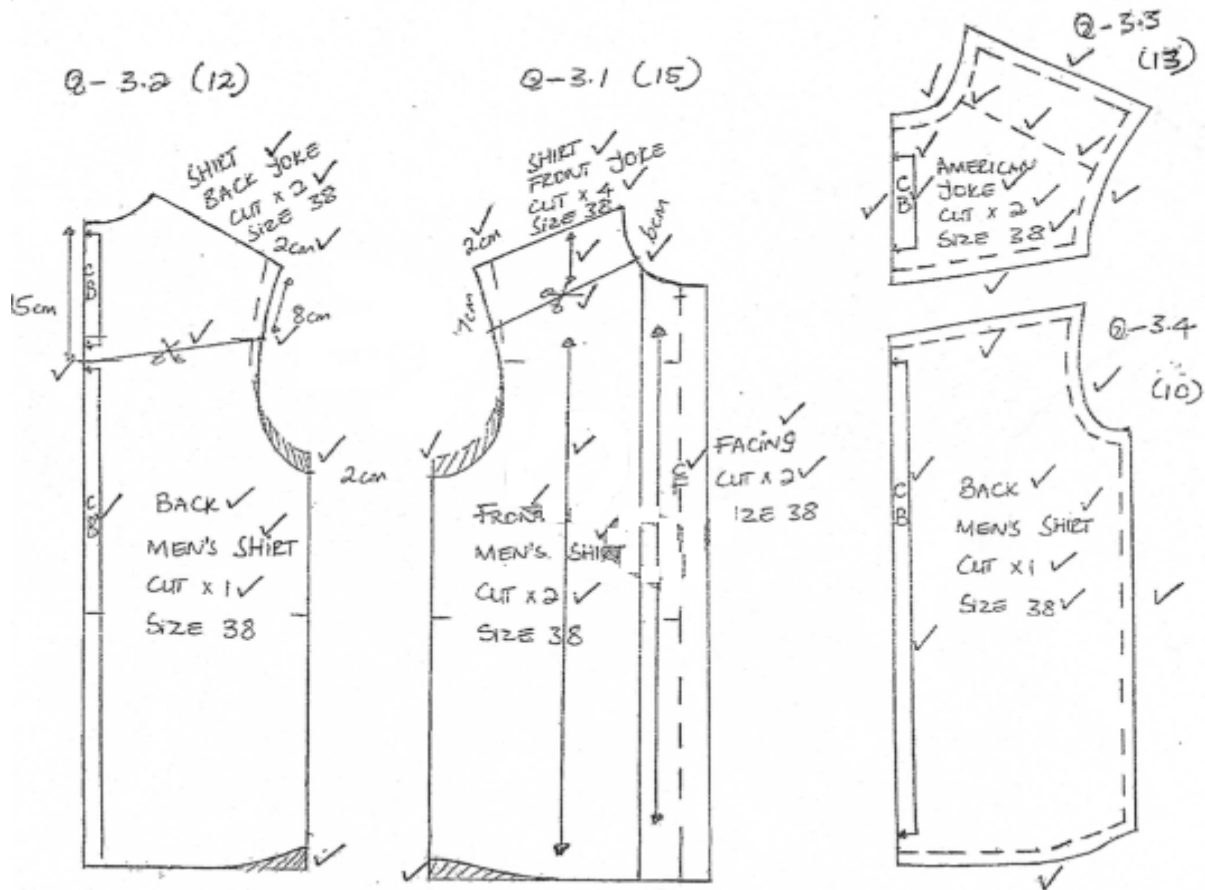 Q-3.2 (12)
SHIRT
BACK YOKE
CUT x 2
SIZE 38
2cm
15cm
CB
8cm
2cm
CB
BACK
MEN'S SHIRT
CUT x 1
SIZE 38
Q-3.1 (15)
SHIRT
FRONT YOKE
CUT x 4
SIZE 38
2cm
6cm
7cm
FRONT
MEN'S SHIRT
CUT x 2
SIZE 38
FACING
CUT x 2
IZE 38
Q-3.3
(13)
CB
AMERICAN
YOKE
CUT x 2
SIZE 38
Q-3.4
(10)
CB
BACK
MEN'S SHIRT
CUT x 1
SIZE 38